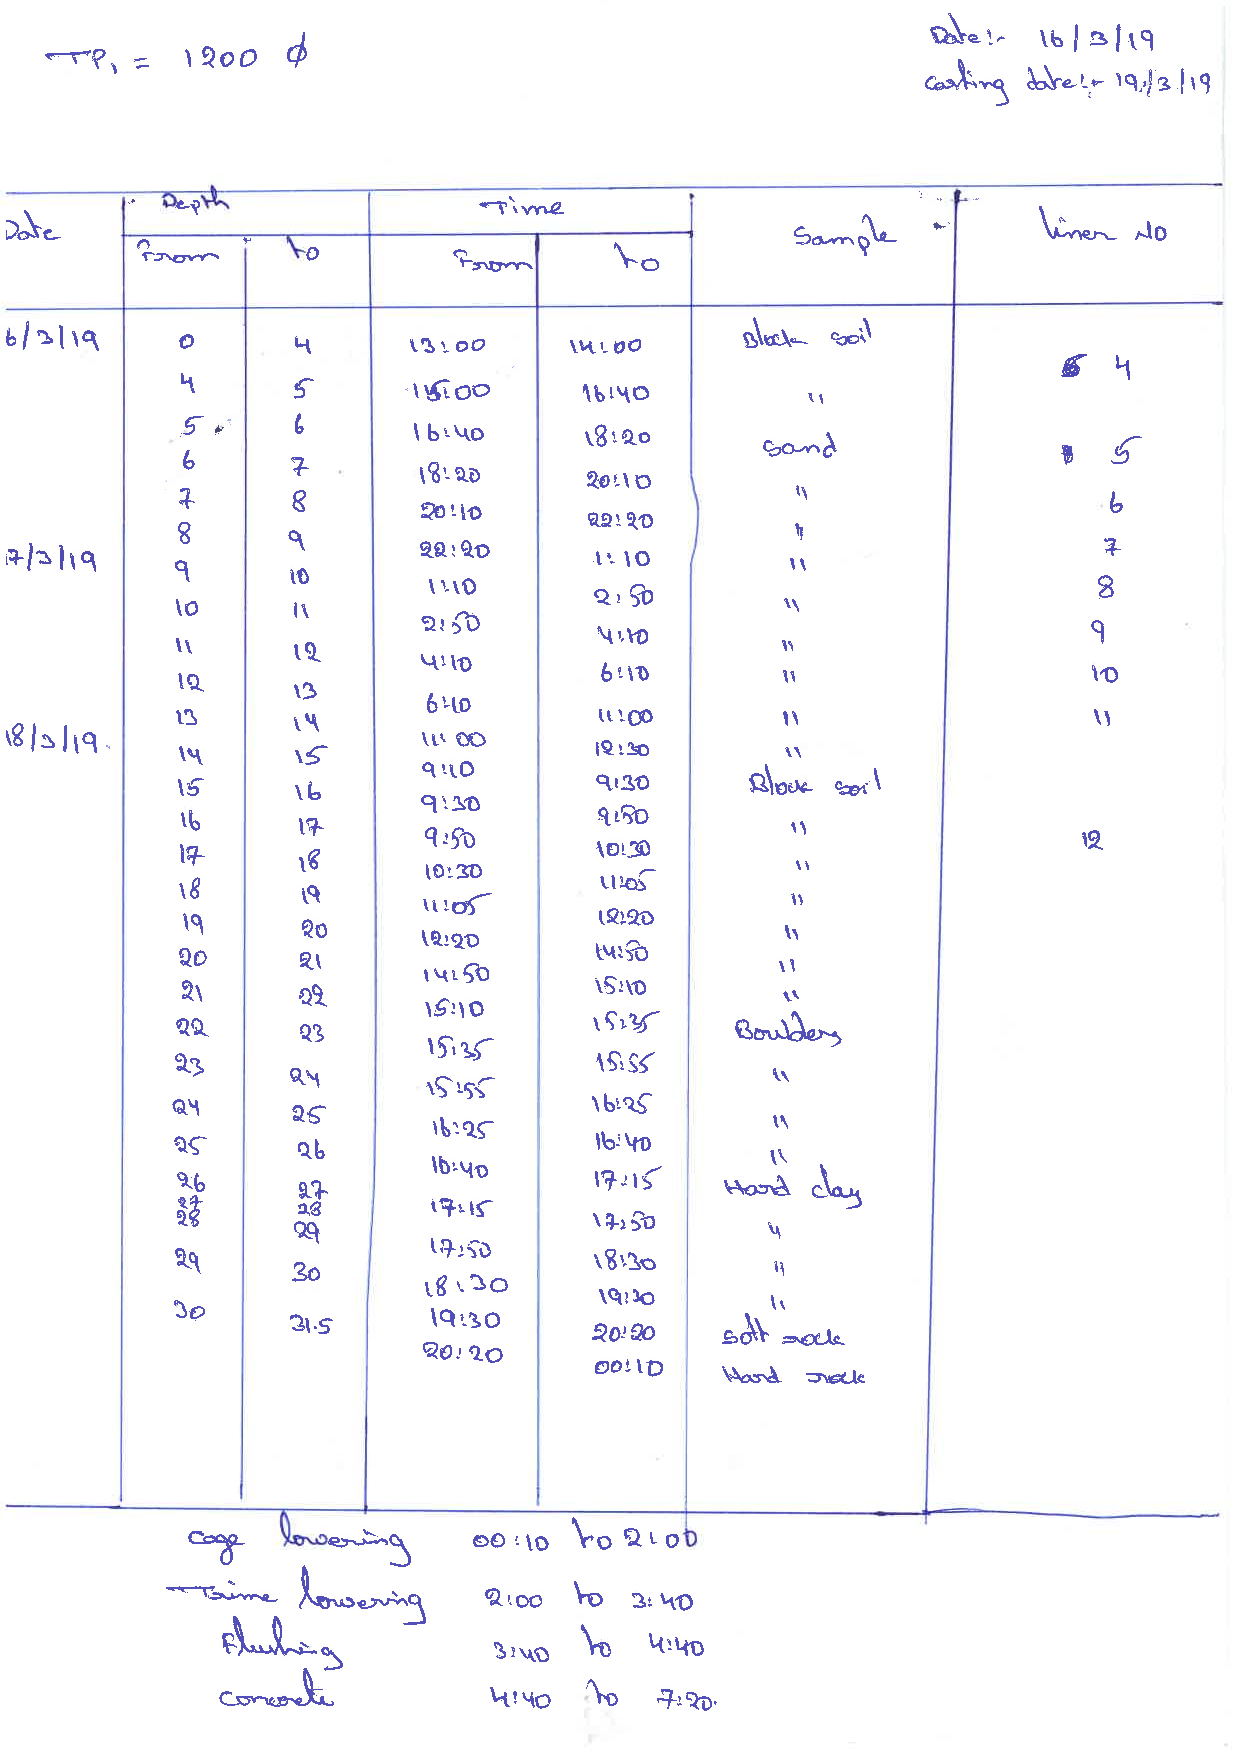 TP1 = 1200 ϕ
Date:- 16/3/19
Casting date:- 19/3/19
Date Depth Time Sample Liner No
From to From to
6/3/19 0 4 13:00 14:00 Block soil
4 5 15:00 16:40 " 4
5 6 16:40 18:20 Sand 5
6 7 18:20 20:10 " 6
7 8 20:10 22:20 " 7
8 9 22:20 1:10 "
17/3/19 9 10 1:10 2:50 " 8
10 11 2:50 4:10 " 9
11 12 4:10 6:10 " 10
12 13 6:10 11:00 " 11
13 14 11:00 12:30 "
18/3/19 14 15 9:10 9:30 Block soil
15 16 9:30 9:50 "
16 17 9:50 10:30 " 12
17 18 10:30 11:05 "
18 19 11:05 12:20 "
19 20 12:20 14:50 "
20 21 14:50 15:10 "
21 22 15:10 15:35 Boulders
22 23 15:35 15:55 "
23 24 15:55 16:25 "
24 25 16:25 16:40 "
25 26 16:40 17:15 Hard clay
26 27 17:15 17:50 "
27 28 17:50 18:30 "
28 29 18:30 19:30 "
29 30 19:30 20:20 Soft rock
30 31.5 20:20 00:10 Hard rock
Cage lowering 00:10 to 2:00
Trime lowering 2:00 to 3:40
Flushing 3:40 to 4:40
Concrete 4:40 to 7:20